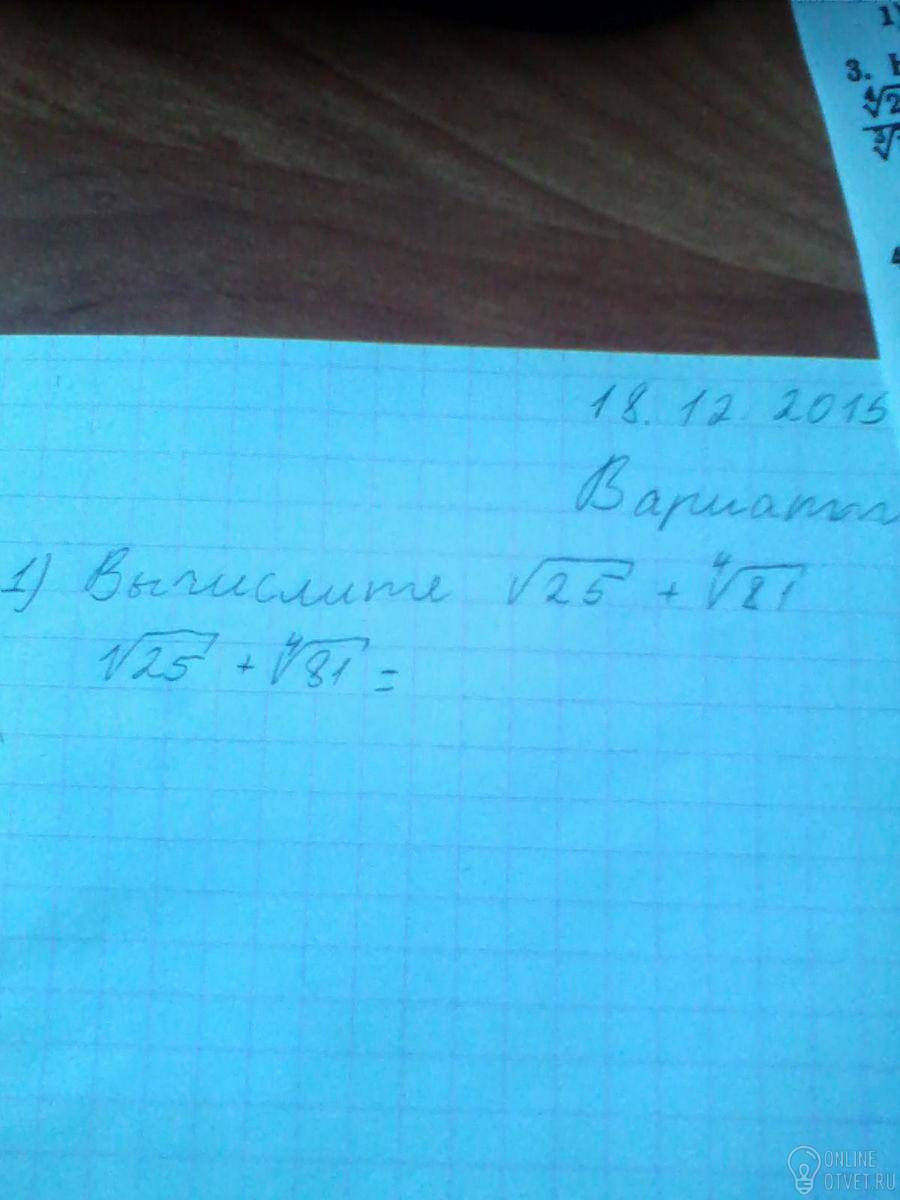 1)
3.
⁴√2
18.12.2015
Вариант
1) Вычислите √25 + ⁴√81
√25 + ⁴√81 =
ONLINE
OTVET.RU